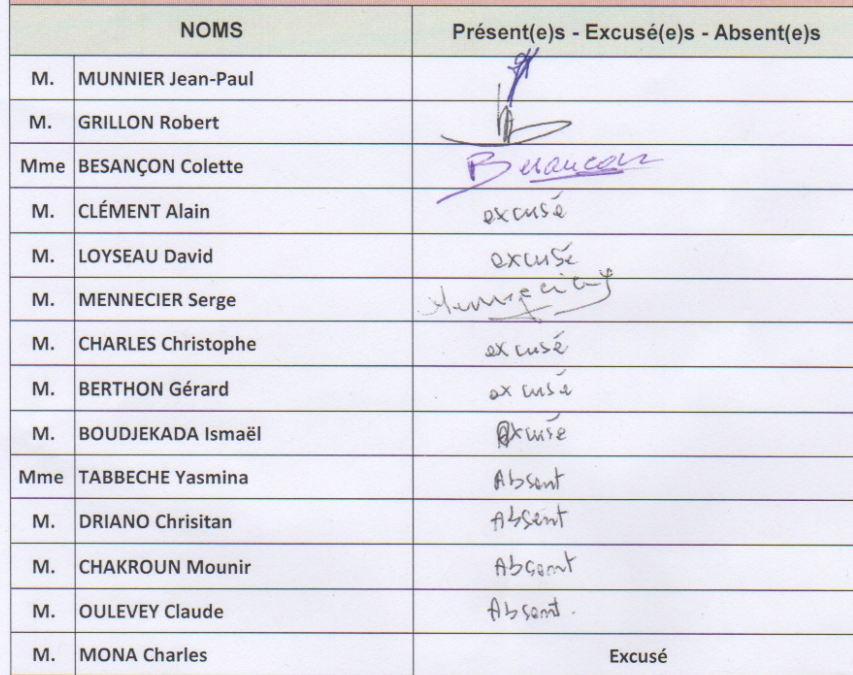 NOMS Présent(e)s - Excusé(e)s - Absent(e)s
M. MUNNIER Jean-Paul
M. GRILLON Robert
Mme BESANÇON Colette Besançon
M. CLÉMENT Alain excusé
M. LOYSEAU David excusé
M. MENNECIER Serge Mennecier
M. CHARLES Christophe excusé
M. BERTHON Gérard excusé
M. BOUDJEKADA Ismaël excusé
Mme TABBECHE Yasmina Absent
M. DRIANO Chrisitan Absent
M. CHAKROUN Mounir Absent
M. OULEVEY Claude Absent.
M. MONA Charles Excusé